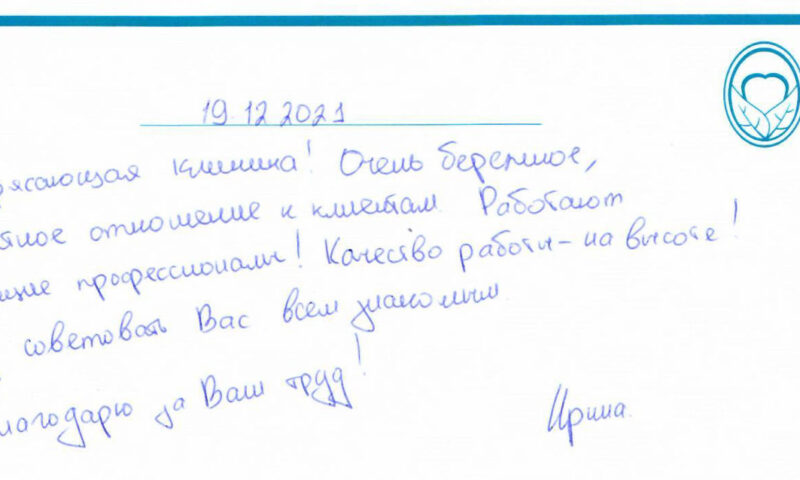 19.12.2021
рясающая клиника! Очень бережное,
тное отношение к клиентам. Работают
щие профессионалы! Качество работы - на высоте!
советовать Вас всем знакомым
лагодарю за Ваш труд!
Ирина.